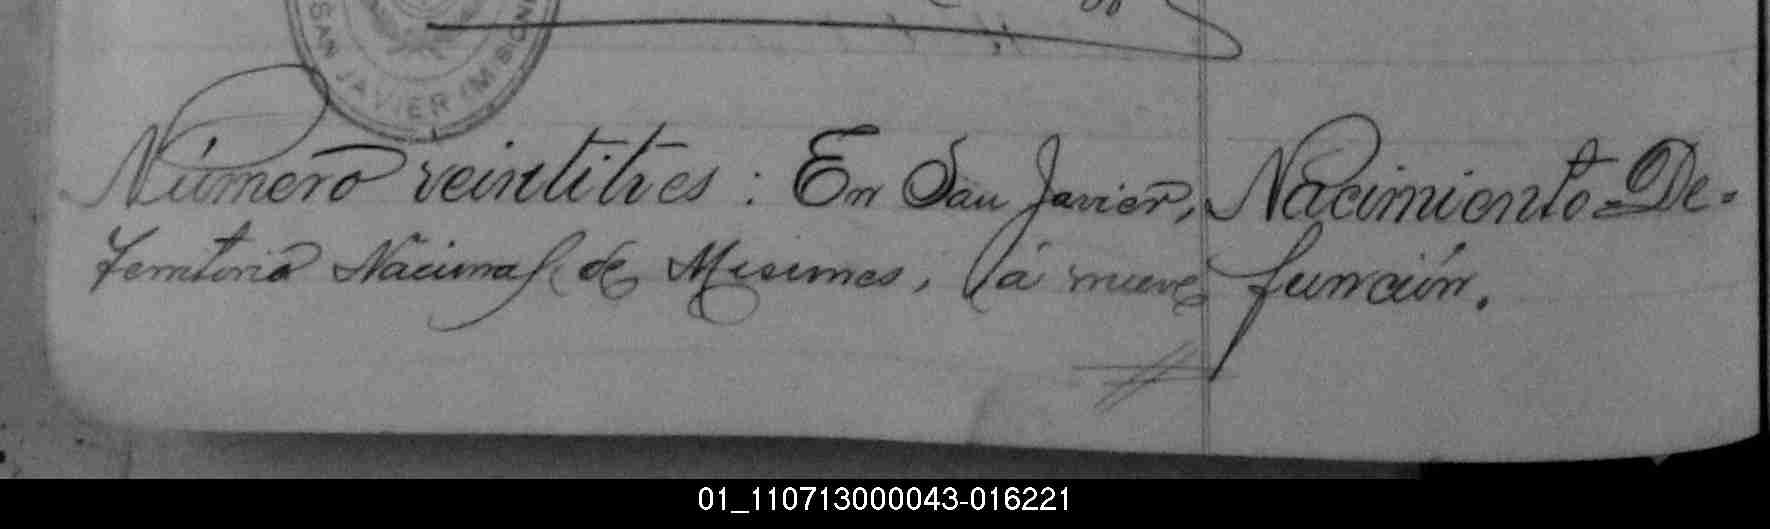 SAN JAVIER (MISIONE
Número veintitres : En San Javier,
Territorio Nacional de Misiones, á nueve
Nacimiento-De-
función.
01_110713000043-016221